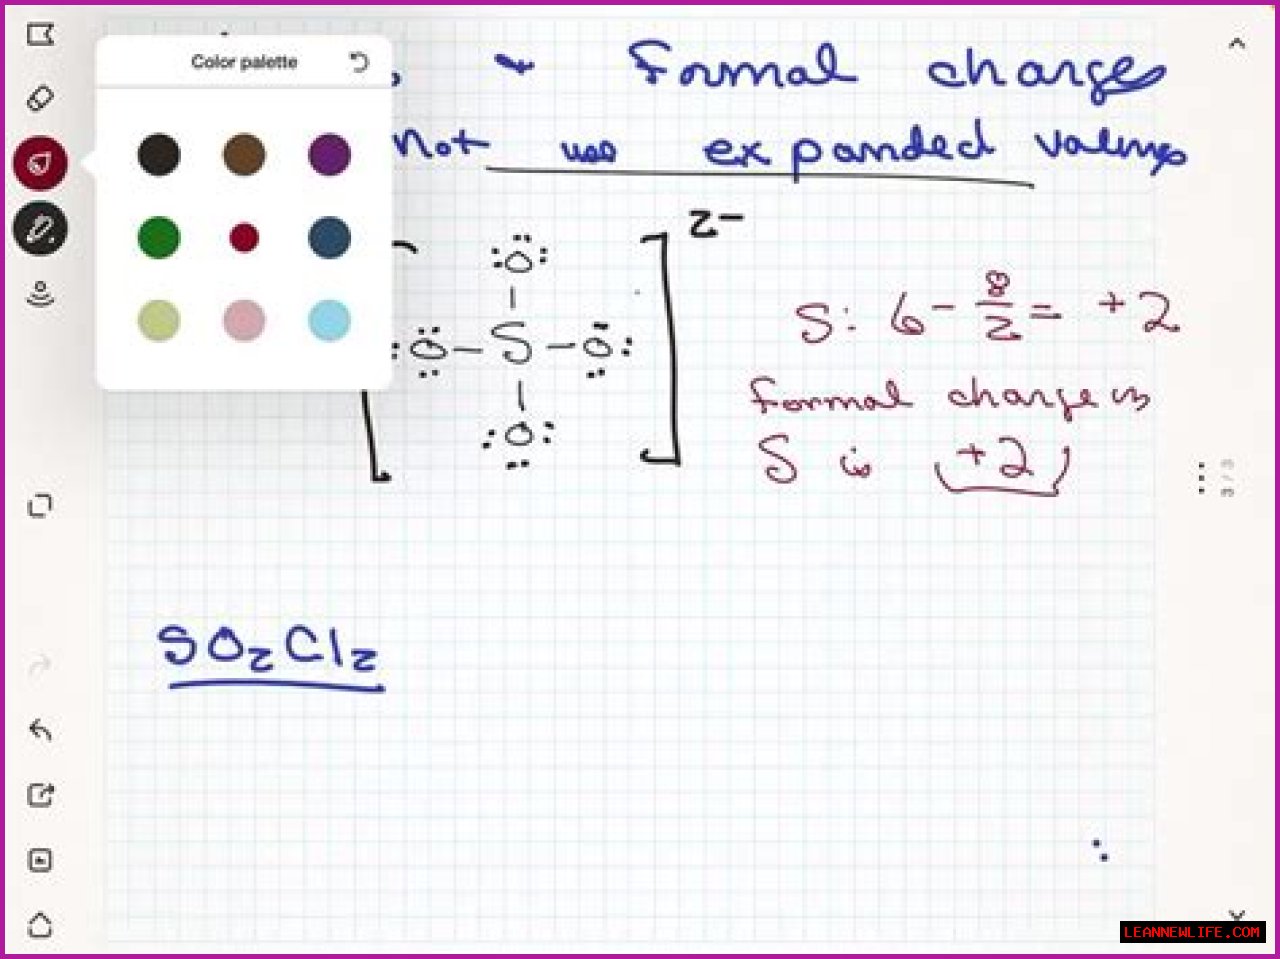 Color palette
Formal charges
not use expanded valency
2-
:Ö: 
S: 6 - 8/2 = +2
:Ö - S - Ö:
Formal charge on
:Ö:
S is +2
3 / 3
SO₂Cl₂
LEANNEWLIFE.COM